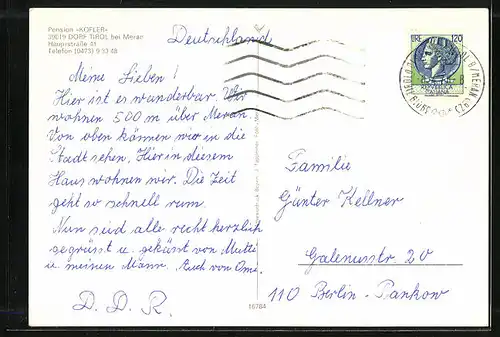 Pension «KOFLER»
39019 DORF TIROL bei Meran
Hauptstraße 41
Telefon (0473) 9 33 48
Deutschland
LIRE 120
REPUBBLICA
ITALIANA
Meine Lieben!
Hier ist es wunderbar. Wir
wohnen 500 m über Meran.
Von oben können wir in die
Stadt sehen, Hier in diesem
Haus wohnen wir. Die Zeit
geht so schnell rum.
Nun seid alle recht herzlich
gegrüsst u. geküsst von Mutti
u meinen Mann. Auch von Oma.
D. D. R.
Familie
Günter Kellner
Galenusstr. 20
110 Berlin-Pankow
16784